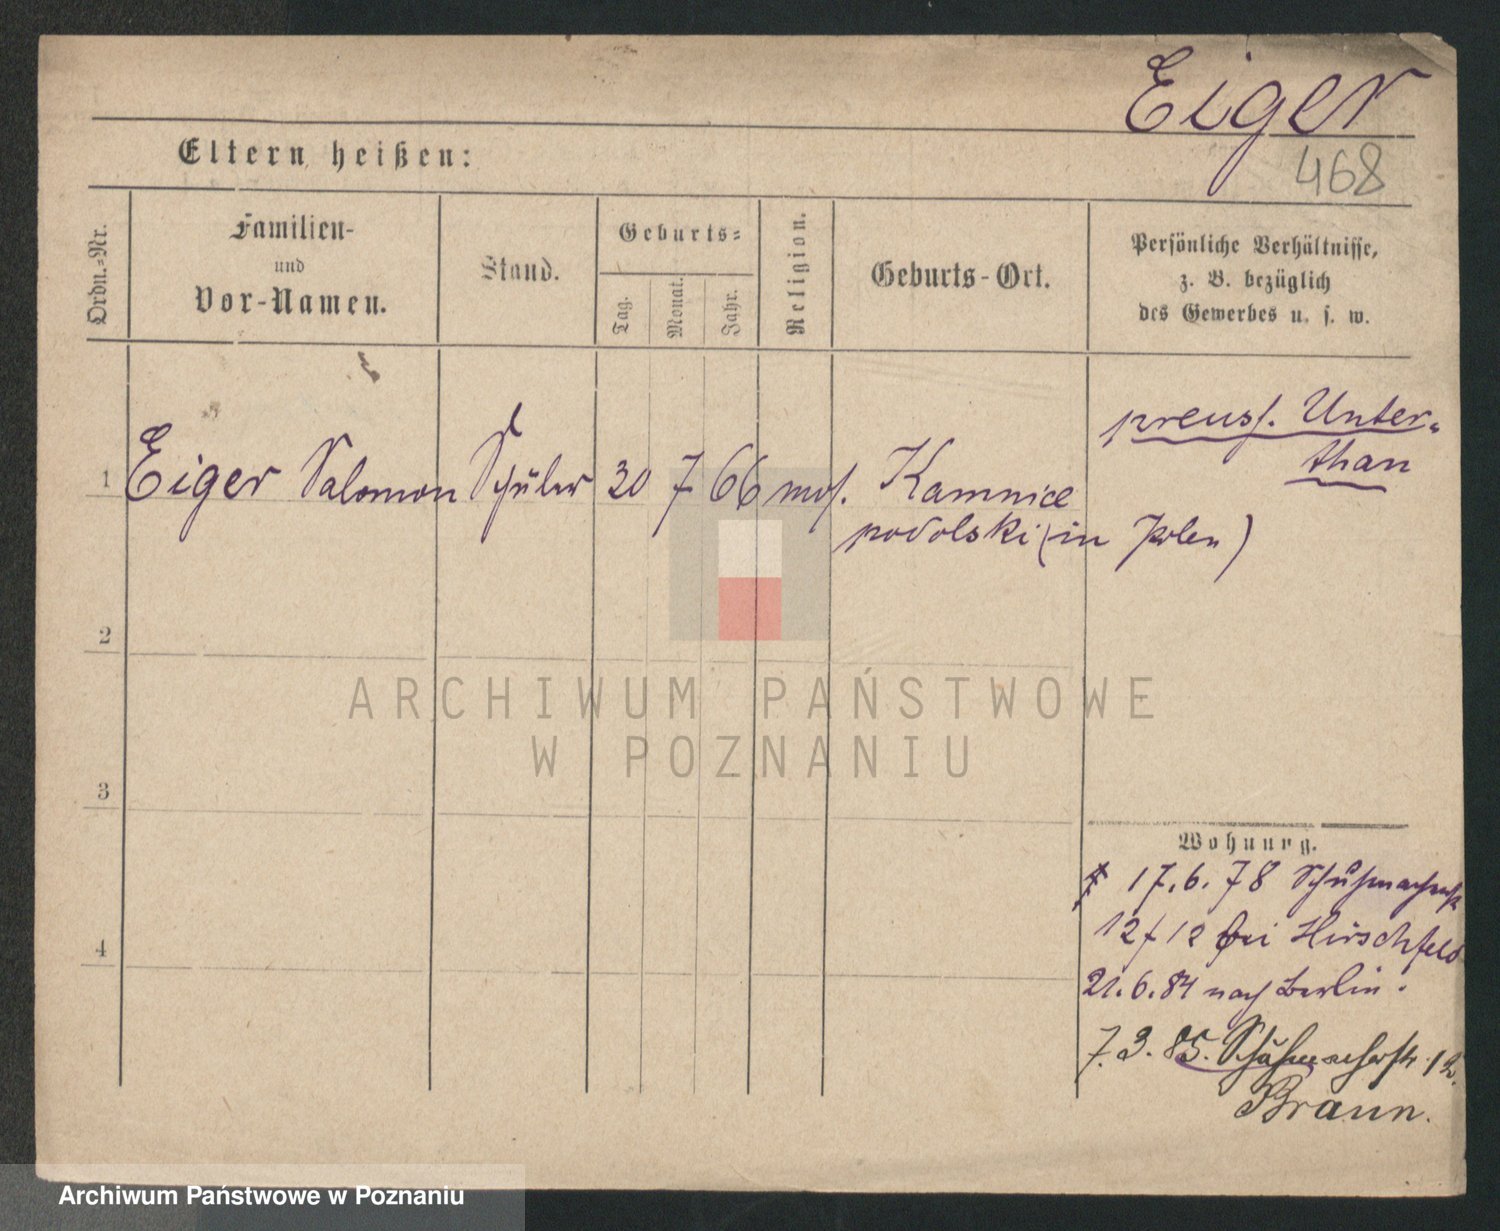 Eiger
468
Eltern heißen:
Ordn.-Nr.
Familien-
und
Vor-Namen.
Stand.
Geburts-
Tag.
Monat.
Jahr.
Religion.
Geburts-Ort.
Persönliche Verhältnisse,
z. B. bezüglich
des Gewerbes u. s. w.
preuss. Unter-
than
1 Eiger Salomon Schüler 30 7 66 mos. Kamnice
podolski (in Polen)
2
3
4
ARCHIWUM PAŃSTWOWE
W POZNANIU
Wohnung.
17.6.78 Schuhmacherstr
12/12 bei Hirschfeld
21.6.84 nach Berlin.
7.3.85. Schuhmacherstr. 12.
Braun.
Archiwum Państwowe w Poznaniu